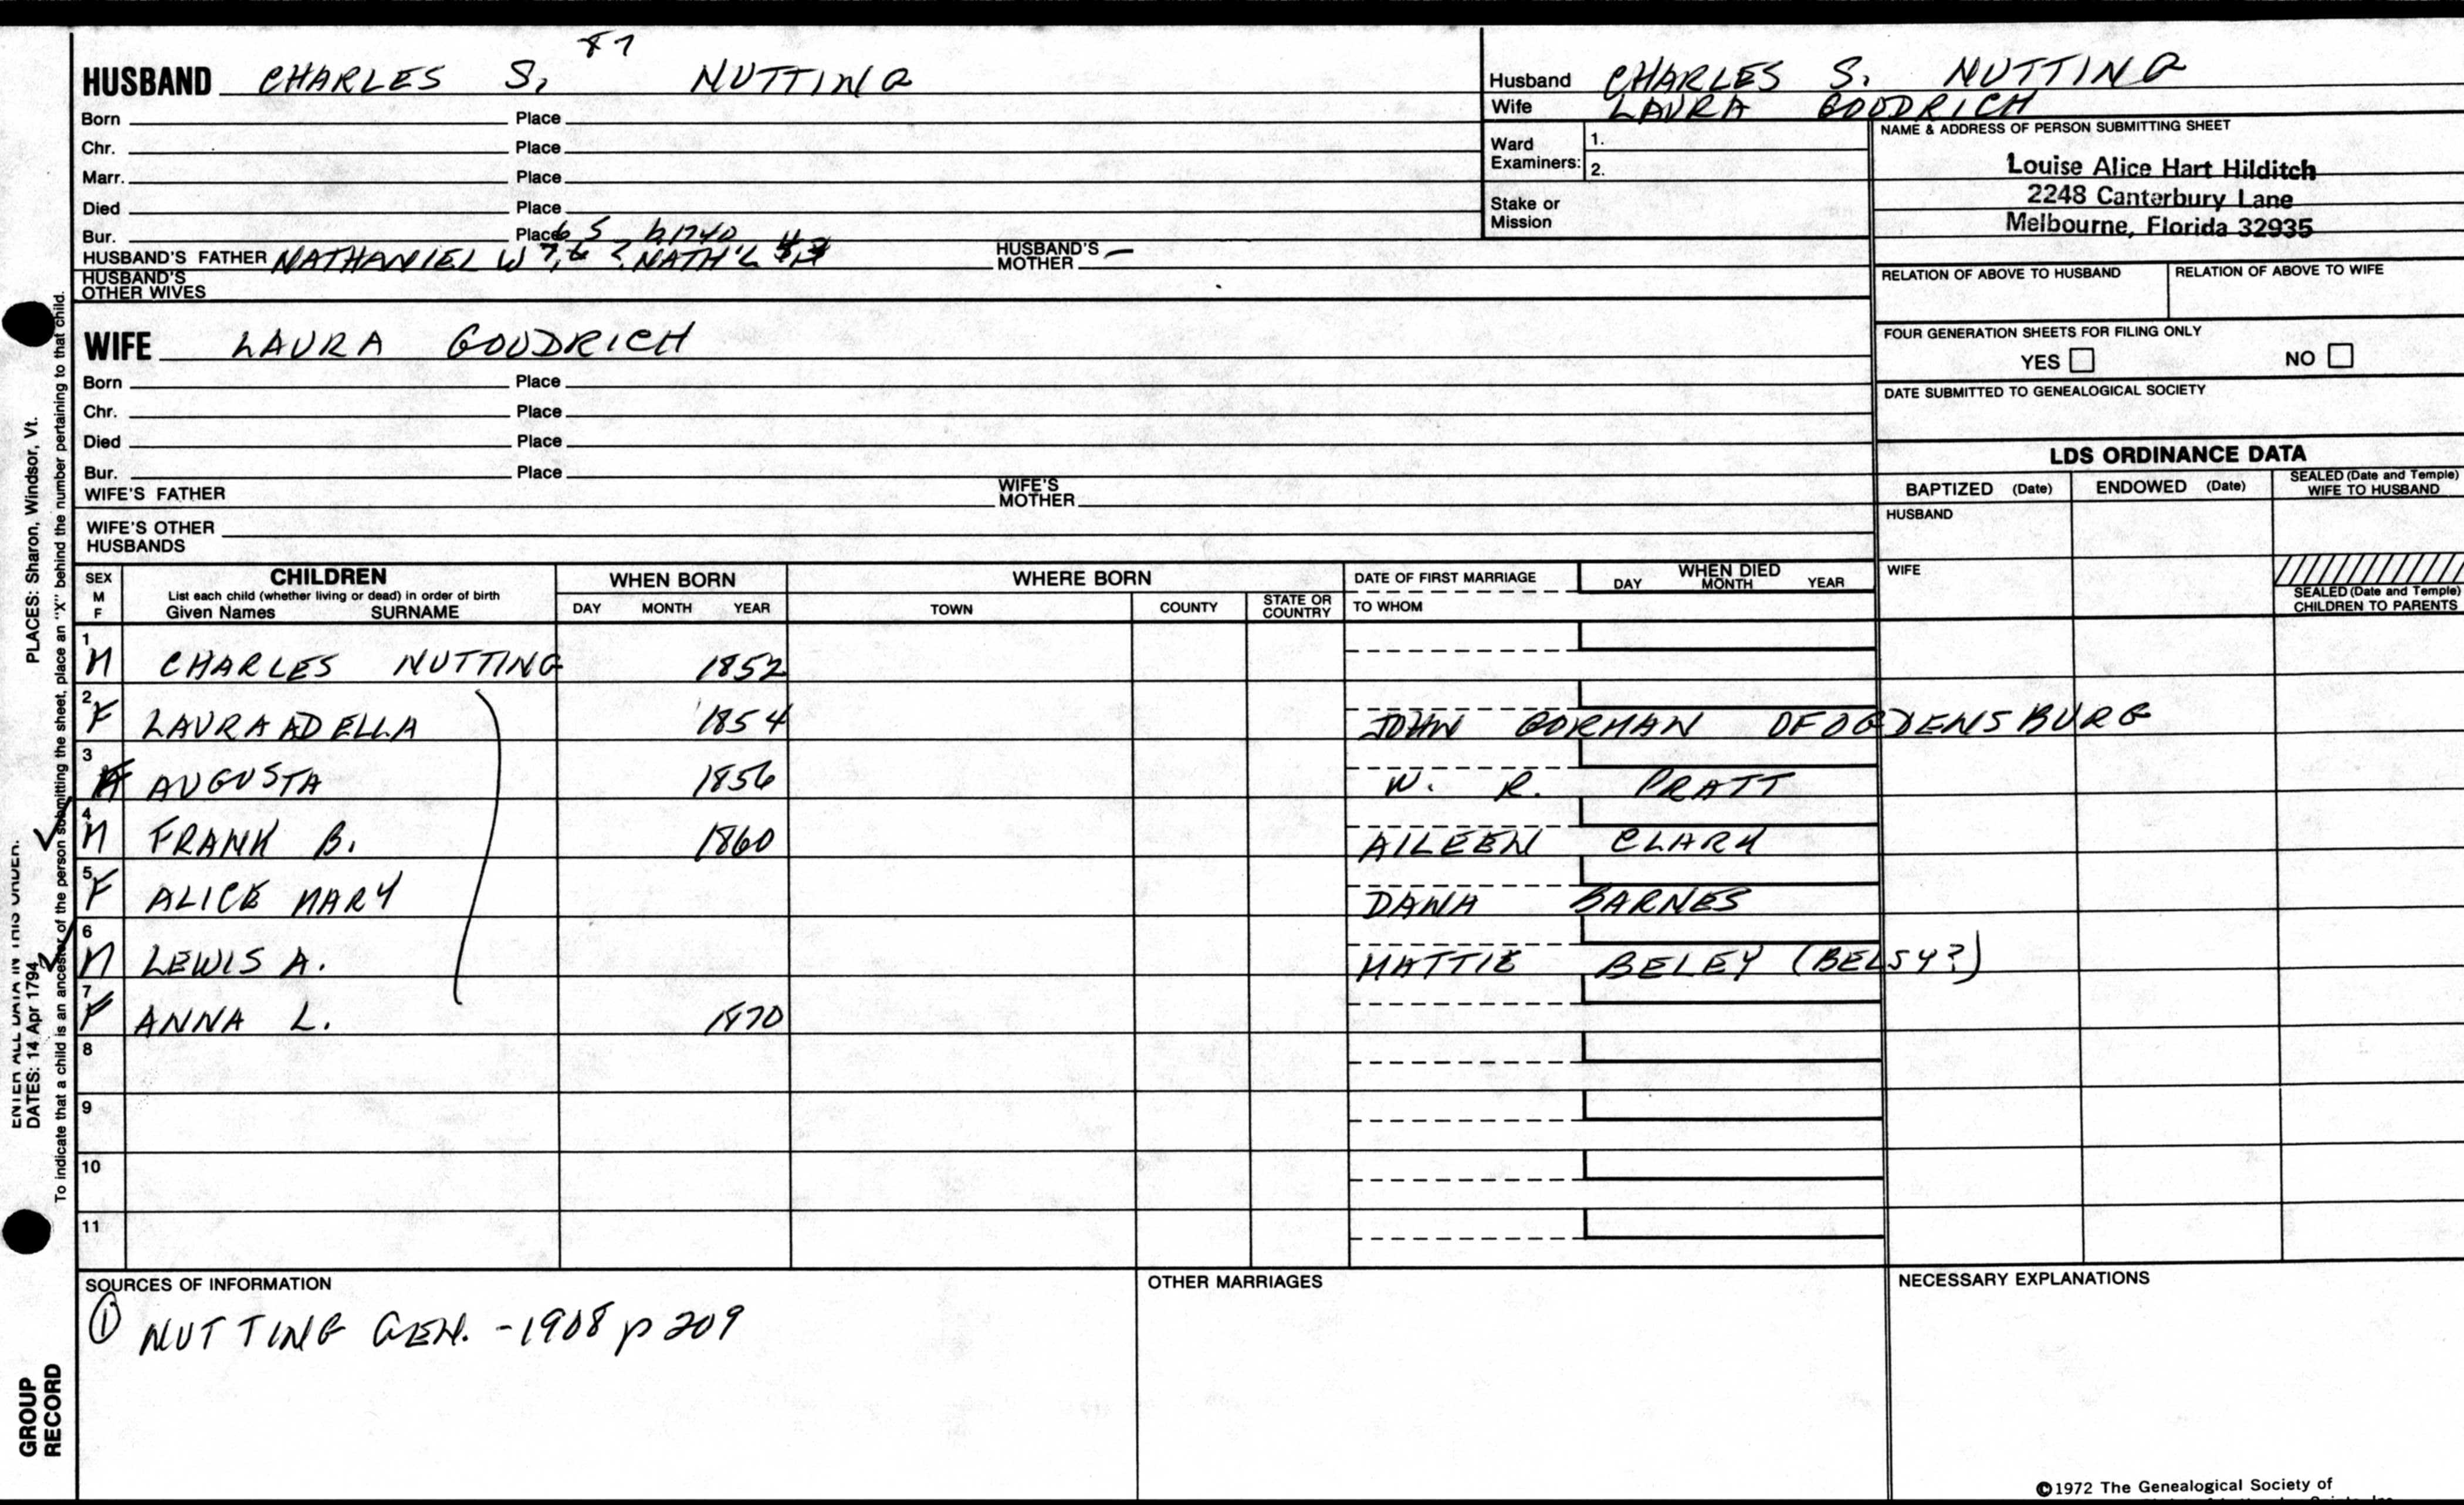 HUSBAND CHARLES S. NUTTING
87
Born Place
Chr. Place
Marr. Place
Died Place
Bur. Place
6 5 b 1740
HUSBAND'S FATHER NATHANIEL W 7, 6 ? NATH'L HUSBAND'S MOTHER —
HUSBAND'S OTHER WIVES
Husband CHARLES S. NUTTING
Wife LAURA GOODRICH
Ward Examiners: 1.
2.
Stake or Mission
NAME & ADDRESS OF PERSON SUBMITTING SHEET
Louise Alice Hart Hilditch
2248 Canterbury Lane
Melbourne, Florida 32935
RELATION OF ABOVE TO HUSBAND RELATION OF ABOVE TO WIFE
FOUR GENERATION SHEETS FOR FILING ONLY
YES NO
DATE SUBMITTED TO GENEALOGICAL SOCIETY
WIFE LAURA GOODRICH
Born Place
Chr. Place
Died Place
Bur. Place
WIFE'S FATHER WIFE'S MOTHER
WIFE'S OTHER HUSBANDS
LDS ORDINANCE DATA
BAPTIZED (Date) ENDOWED (Date) SEALED (Date and Temple) WIFE TO HUSBAND
HUSBAND
WIFE
SEALED (Date and Temple) CHILDREN TO PARENTS
SEX M F CHILDREN List each child (whether living or dead) in order of birth Given Names SURNAME
WHEN BORN DAY MONTH YEAR
WHERE BORN TOWN COUNTY STATE OR COUNTRY
DATE OF FIRST MARRIAGE TO WHOM
WHEN DIED DAY MONTH YEAR
1 M CHARLES NUTTING 1852
2 F LAURA ADELLA 1854 JOHN GORMAN OF OGDENSBURG
3 F AUGUSTA 1856 W. R. PRATT
4 M FRANK B. 1860 AILEEN CLARK
5 F ALICE MARY DANA BARNES
6 M LEWIS A. MATTIE BELEY (BELSY?)
7 F ANNA L. 1870
8
9
10
11
SOURCES OF INFORMATION
① NUTTING GEN. - 1908 p 209
OTHER MARRIAGES
NECESSARY EXPLANATIONS
©1972 The Genealogical Society of
PLACES: Sharon, Windsor, Vt.
To indicate that a child is an ancestor of the person submitting the sheet, place an "X" behind the number pertaining to that child.
ENTER ALL DATA IN THIS ORDER:
DATES: 14 Apr 1794
GROUP
RECORD